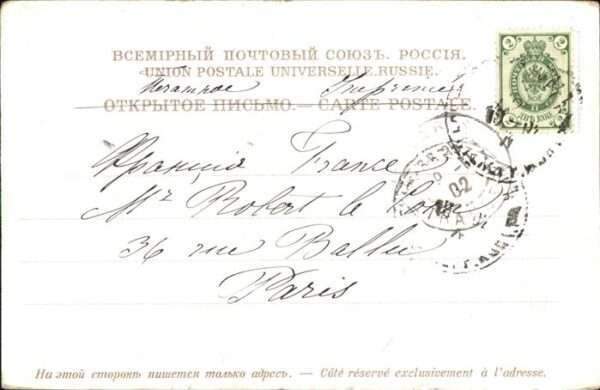 ВСЕМІРНЫЙ ПОЧТОВЫЙ СОЮЗЪ. РОССІЯ.
UNION POSTALE UNIVERSELLE. RUSSIE.
Печатное Imprimé
ОТКРЫТОЕ ПИСЬМО. — CARTE POSTALE.
2 2
ДВѢ КОП.
Франція France
Mr Robert le
36 rue Ballu
Paris
02
На этой сторонѣ пишется только адресъ. — Côté réservé exclusivement à l'adresse.